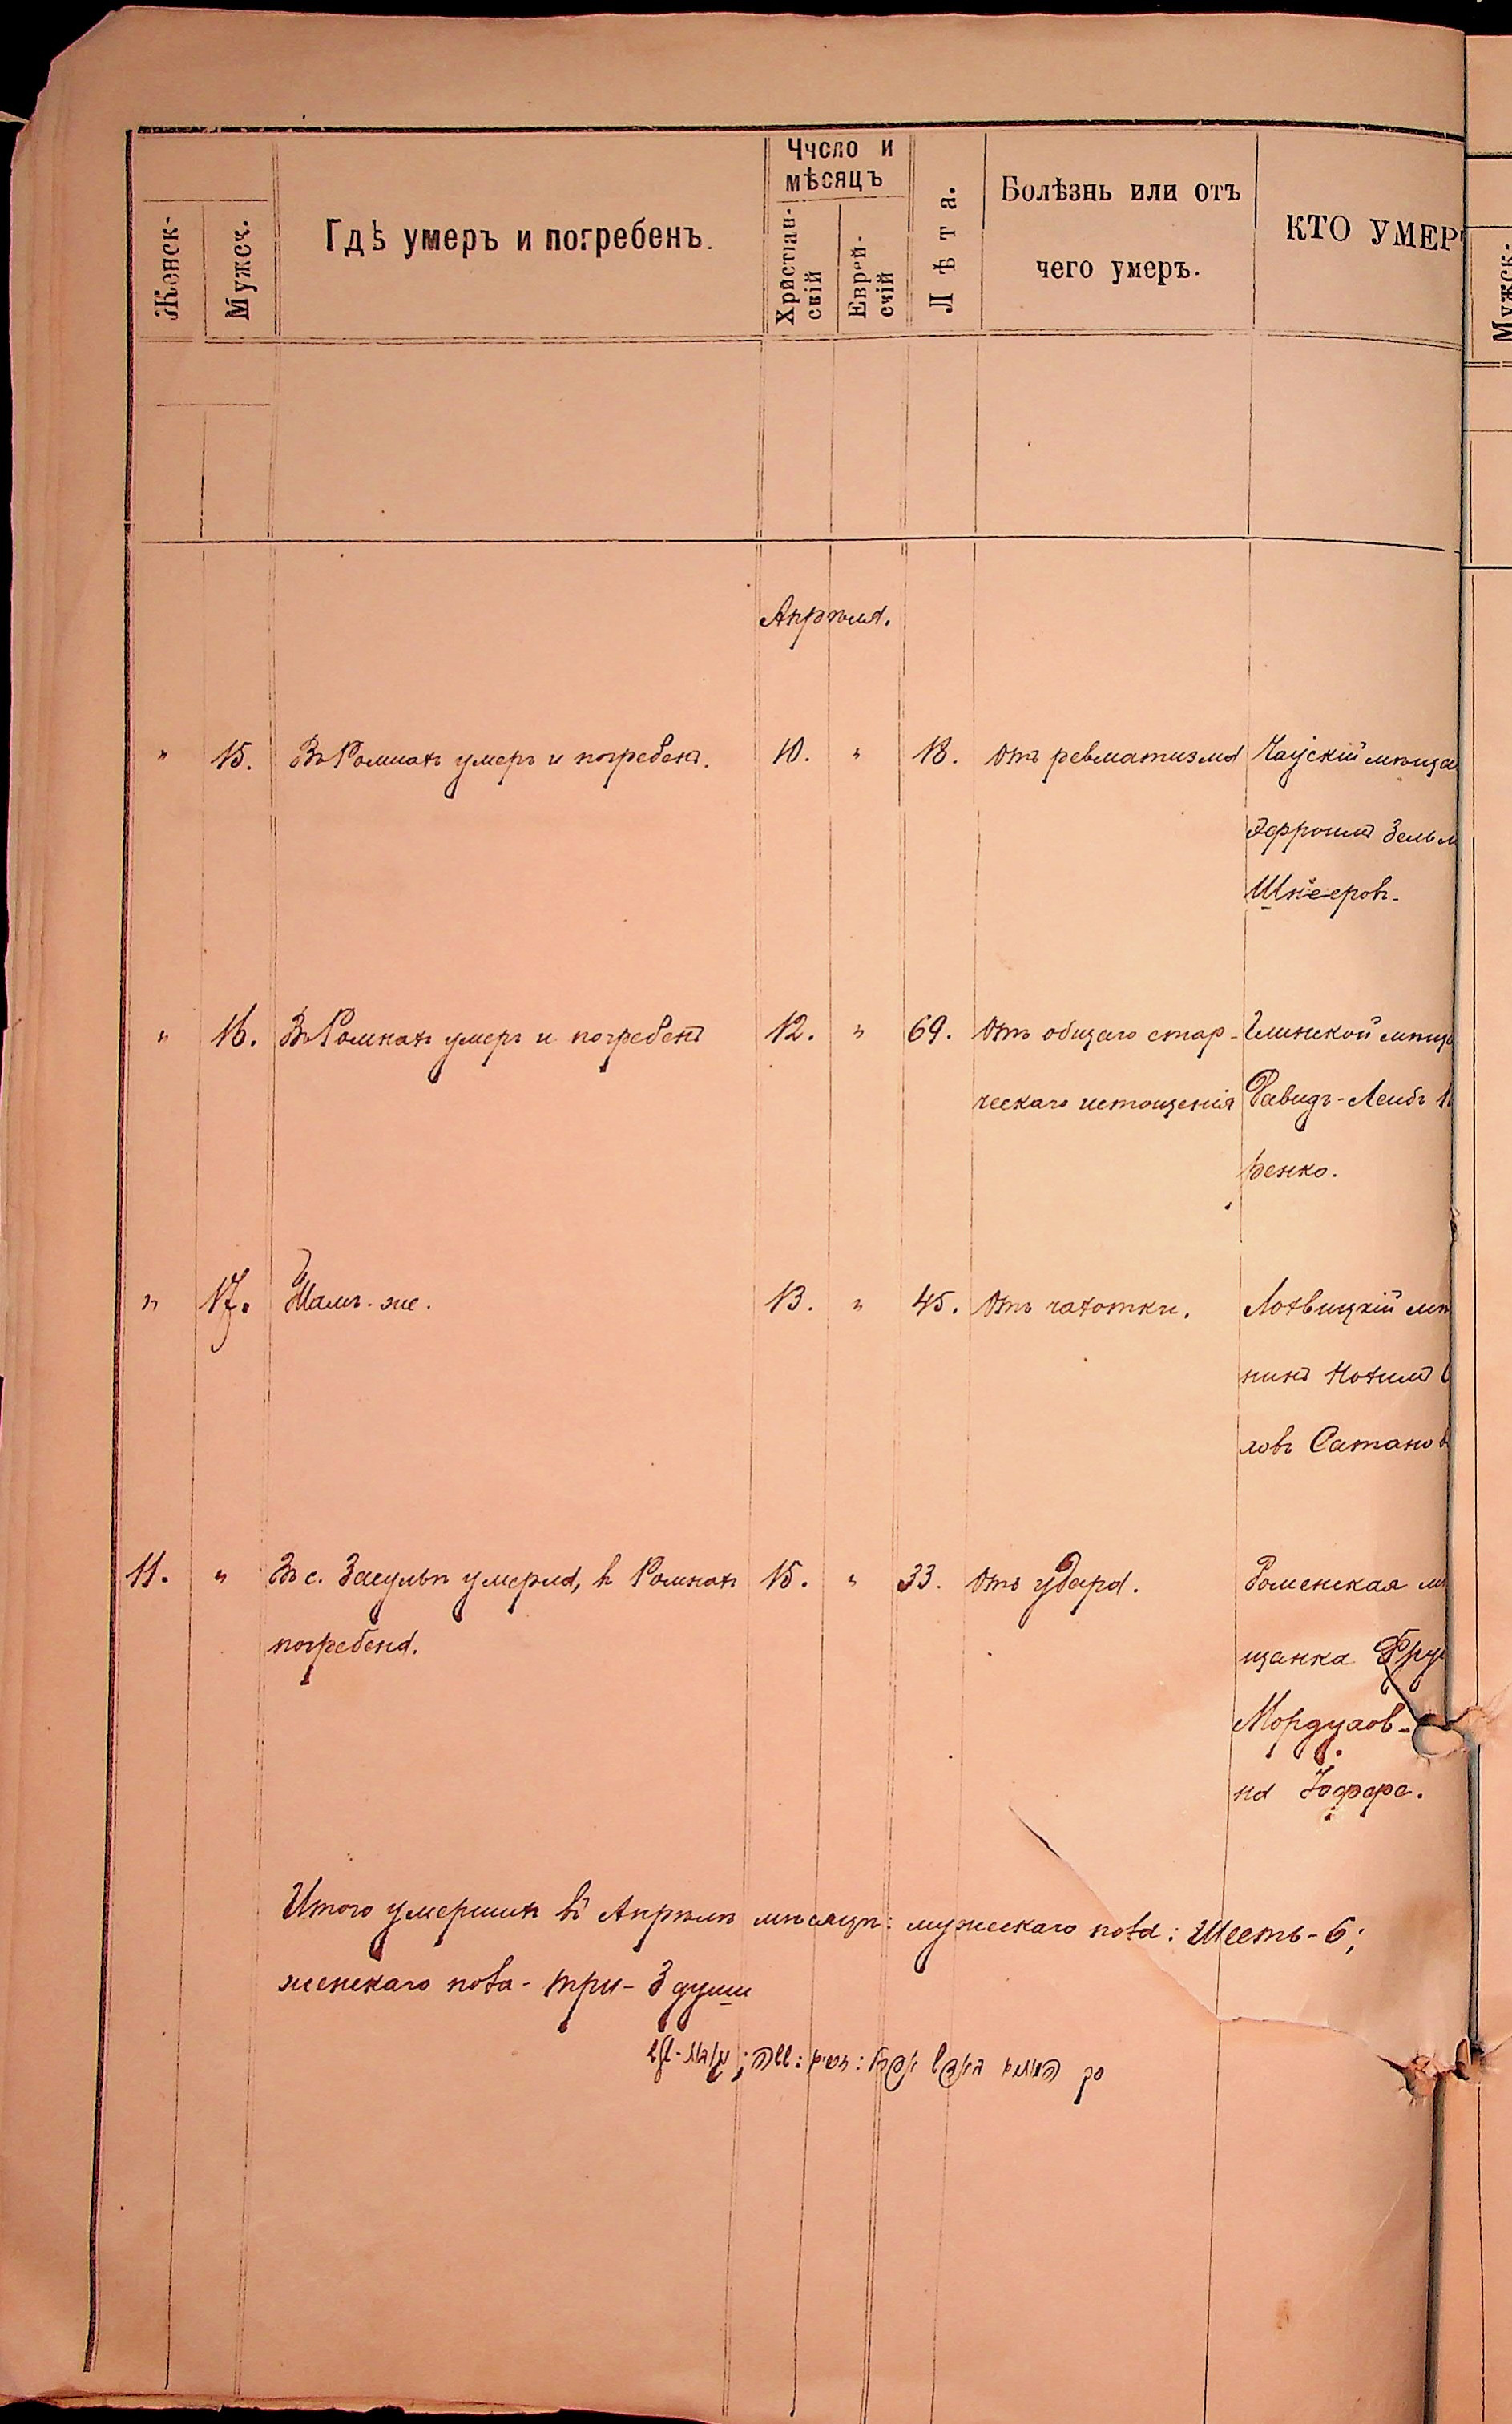 Женск-
Мужск.
Гдѣ умеръ и погребенъ.
Число и
мѣсяцъ
Христіан-
скій
Еврей-
скій
Лѣта.
Болѣзнь или отъ
чего умеръ.
КТО УМЕР
Мужск-
Апрѣля.
" 15. Въ Ромнахъ умеръ и погребенъ. 10. " 18. Отъ ревматизма Чаускій мѣща
Эфроимъ Зельм
Шнееровъ.
" 16. Въ Ромнахъ умеръ и погребенъ 12. " 69. Отъ общаго стар- Глинской мѣщ
ческаго истощенія Давидъ-Лейбъ
ренко.
" 17. Тамъ-же. 13. " 45. Отъ чахотки. Лохвицкій мѣ
нинъ Нохимъ
ловъ Сатанов
11. " Въ с. Засульѣ умерла, въ Ромнахъ 15. " 33. Отъ удара. Роменская мѣ
погребена.
щанка Фру
Мордухов-
на Іоффе.
Итого умершихъ въ Апрѣлѣ мѣсяцѣ: мужескаго пола: Шесть-6;
женскаго пола-три-3 души